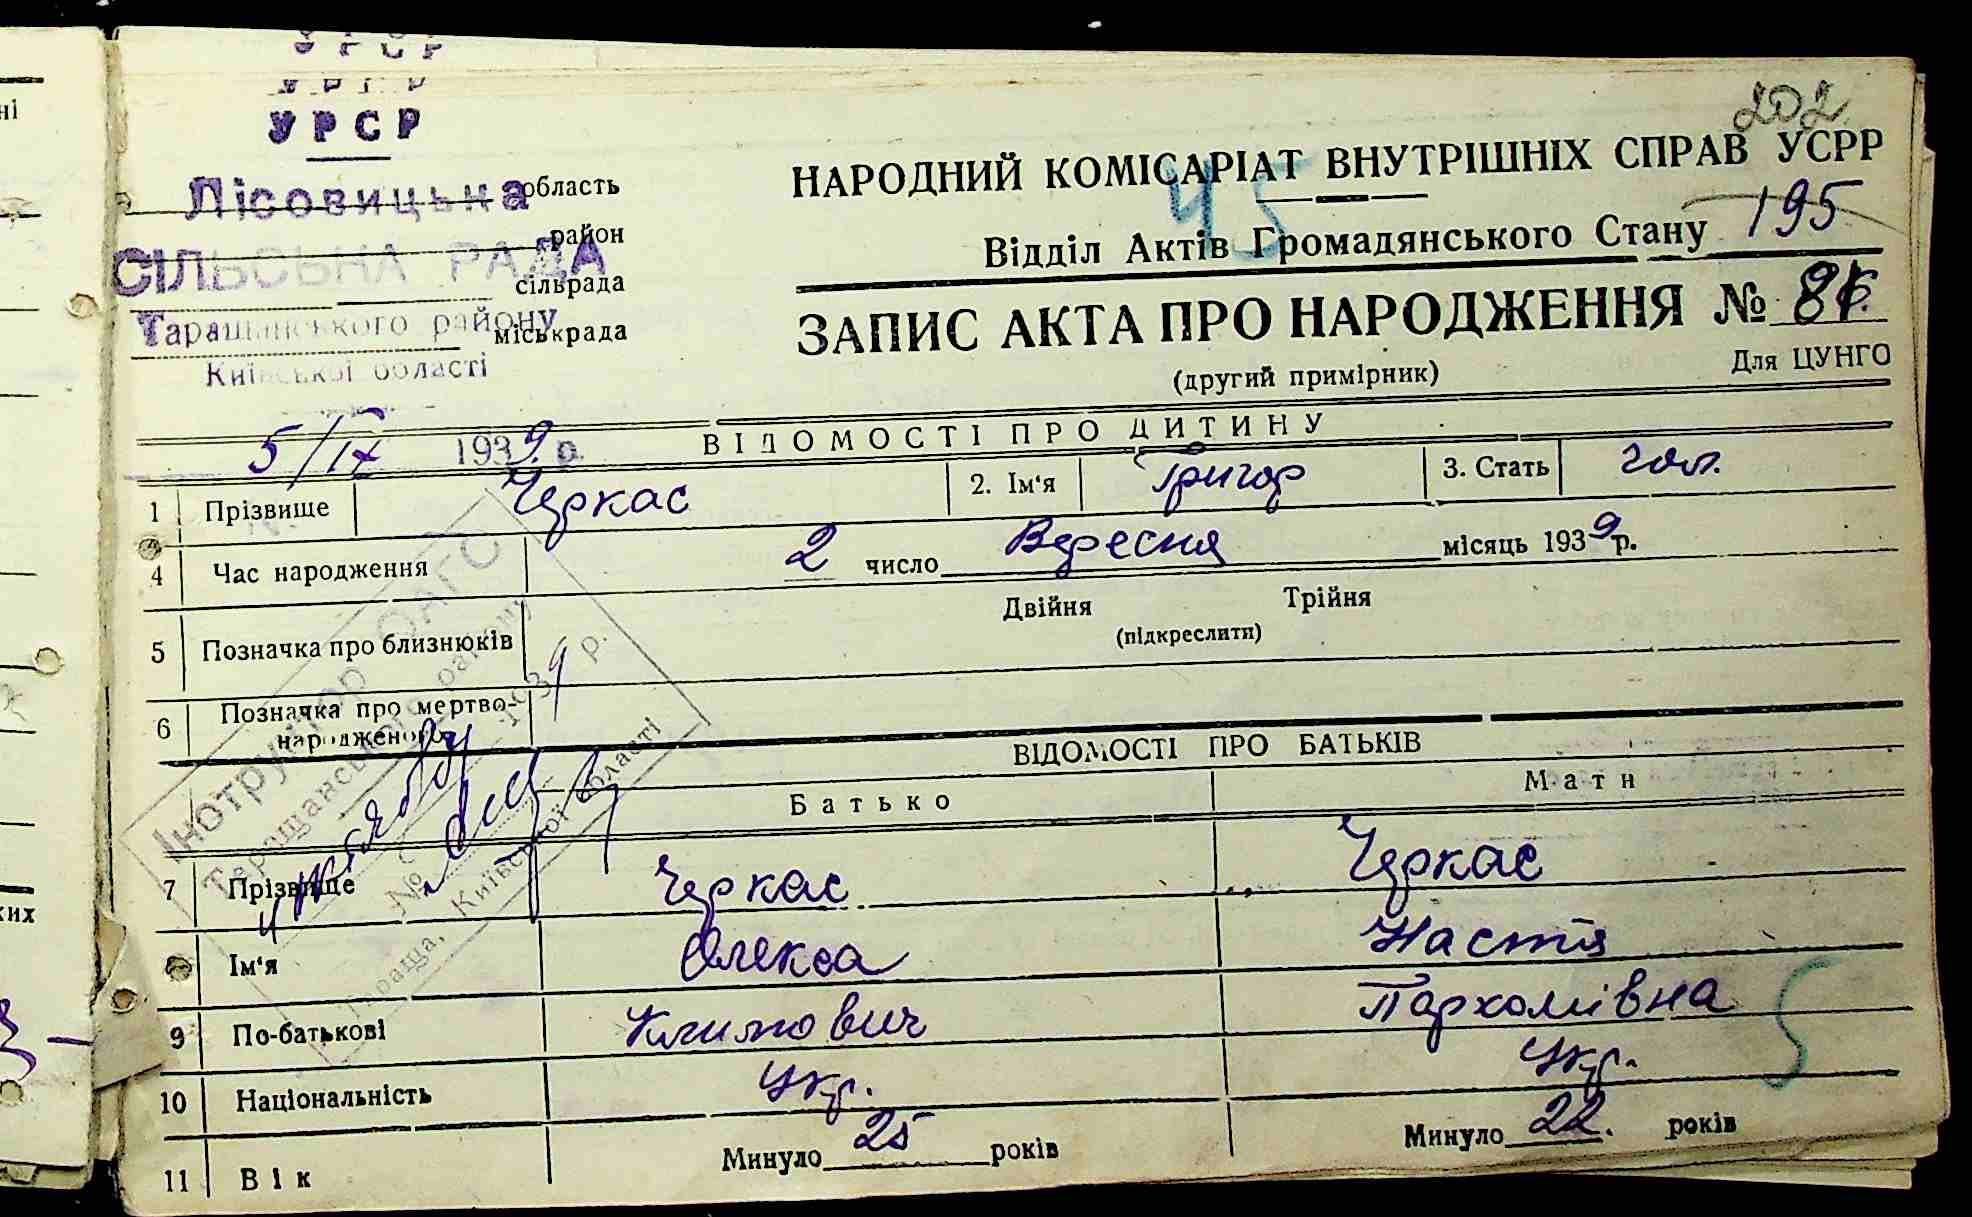 УРСР
УРСР
УРСР
202
Лісовицька область
район
СІЛЬСЬКА РАДА
сільрада
Таращанського району
міськрада
Київської області
НАРОДНИЙ КОМІСАРІАТ ВНУТРІШНІХ СПРАВ УСРР
45
Відділ Актів Громадянського Стану 195
ЗАПИС АКТА ПРО НАРОДЖЕННЯ №
(другий примірник)
Для ЦУНГО
5/IX 1939 р.
ВІДОМОСТІ ПРО ДИТИНУ
1 Прізвище Черкас 2. Ім'я Григор 3. Стать чол.
4 Час народження 2 число Вересня місяць 1939 р.
5 Позначка про близнюків Двійня Трійня
(підкреслити)
6 Позначка про мертво-
народженого
Інструктор ОАГС
Таращанського району
1939 р.
№
Тараща, Київської області
ВІДОМОСТІ ПРО БАТЬКІВ
Батько Мати
7 Прізвище Черкас Черкас
Ім'я Олекса Настя
9 По-батькові Климович Пархомівна
5
10 Національність Укр. Укр.
11 Вік Минуло 25 років Минуло 22. років
ні
ких